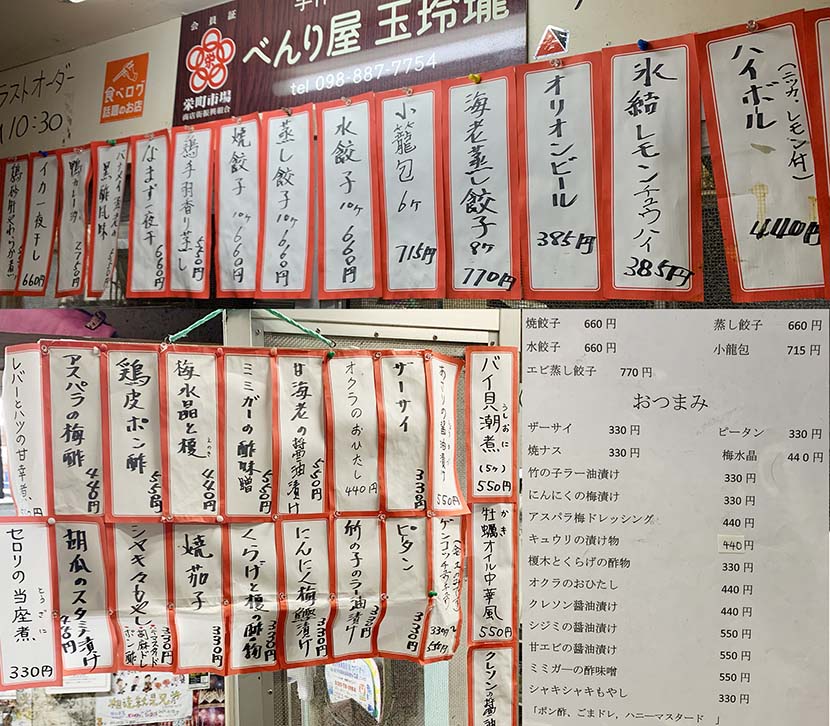 会員証
栄町市場
商店街振興組合
べんり屋 玉玲瓏
tel 098-887-7754
食べログ
話題のお店
ラストオーダー
10:30
ハイボル (ニッカ、レモン付) 440円
氷結レモンチュウハイ 385円
オリオンビール 385円
海老蒸し餃子 8ケ 770円
小籠包 6ケ 715円
水餃子 10ケ 660円
蒸し餃子 10ケ 660円
焼餃子 10ケ 660円
鶏手羽香り蒸し 550円
なまず一夜干 660円
黒酢風味
イカ一夜干し 660円
バイ貝潮煮 うしおに (5ケ) 550円
あさりの醤油漬け 550円
ザーサイ 330円
オクラのおひたし 440円
甘海老の醤油漬け 550円
ミミガーの酢味噌 550円
梅水晶と榎 えのき 440円
鶏皮ポン酢 550円
アスパラの梅酢 440円
レバーとハツの甘辛煮
牡蠣オイル中華風 かき 550円
クレソンの醤油
ピータン 330円
竹の子のラー油漬け 330円
にんにく梅鰹漬け 330円
くらげと榎の酢の物 330円
焼茄子 330円
シャキシャキもやし 330円
胡瓜のスタミナ漬け
セロリの当座煮 とうざに 330円
焼餃子 660円 蒸し餃子 660円
水餃子 660円 小龍包 715円
エビ蒸し餃子 770円
おつまみ
ザーサイ 330円 ピータン 330円
焼ナス 330円 梅水晶 440円
竹の子ラー油漬け 330円
にんにくの梅漬け 330円
アスパラ梅ドレッシング 440円
キュウリの漬け物 440円
榎木とくらげの酢物 330円
オクラのおひたし 440円
クレソン醤油漬け 440円
シジミの醤油漬け 550円
甘エビの醤油漬け 550円
ミミガーの酢味噌 550円
シャキシャキもやし 330円
「ポン酢、ごまドレ、ハニーマスタード 」